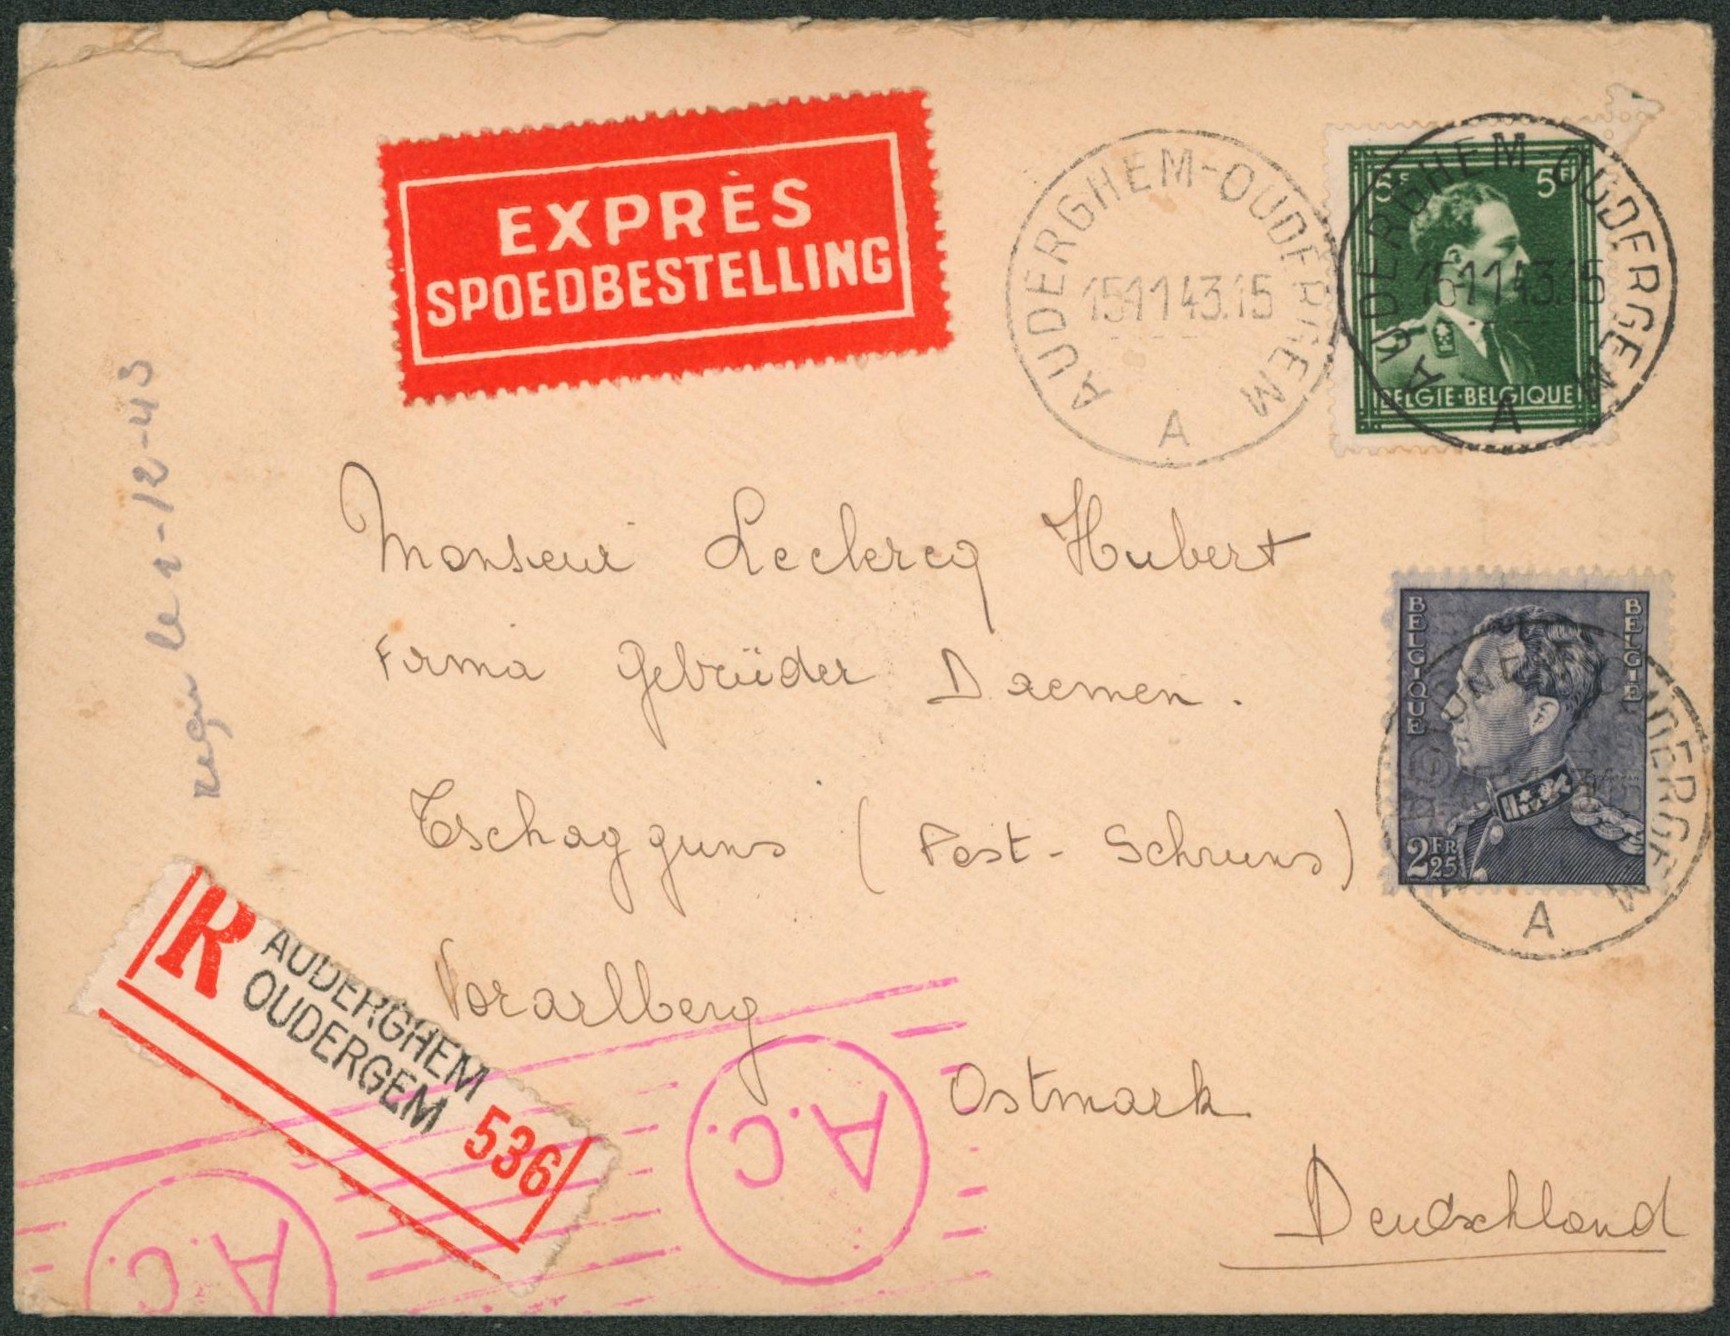 EXPRÈS
SPOEDBESTELLING
AUDERGHEM-OUDERGEM
15-11 43.15
A
5F 5F
BELGIE·BELGIQUE
AUDERGHEM-OUDERGEM
15-11 43.15
A
Monsieur Leclercq Hubert
Firma Gebrüder Daemen.
Tschagguns (Post-Schruns)
Vorarlberg
Ostmark
Deutschland
BELGIQUE
BELGIE
2FR25
OUDERGEM
A
le 1-12-43
R
AUDERGHEM
OUDERGEM
536
A.C.
A.C.